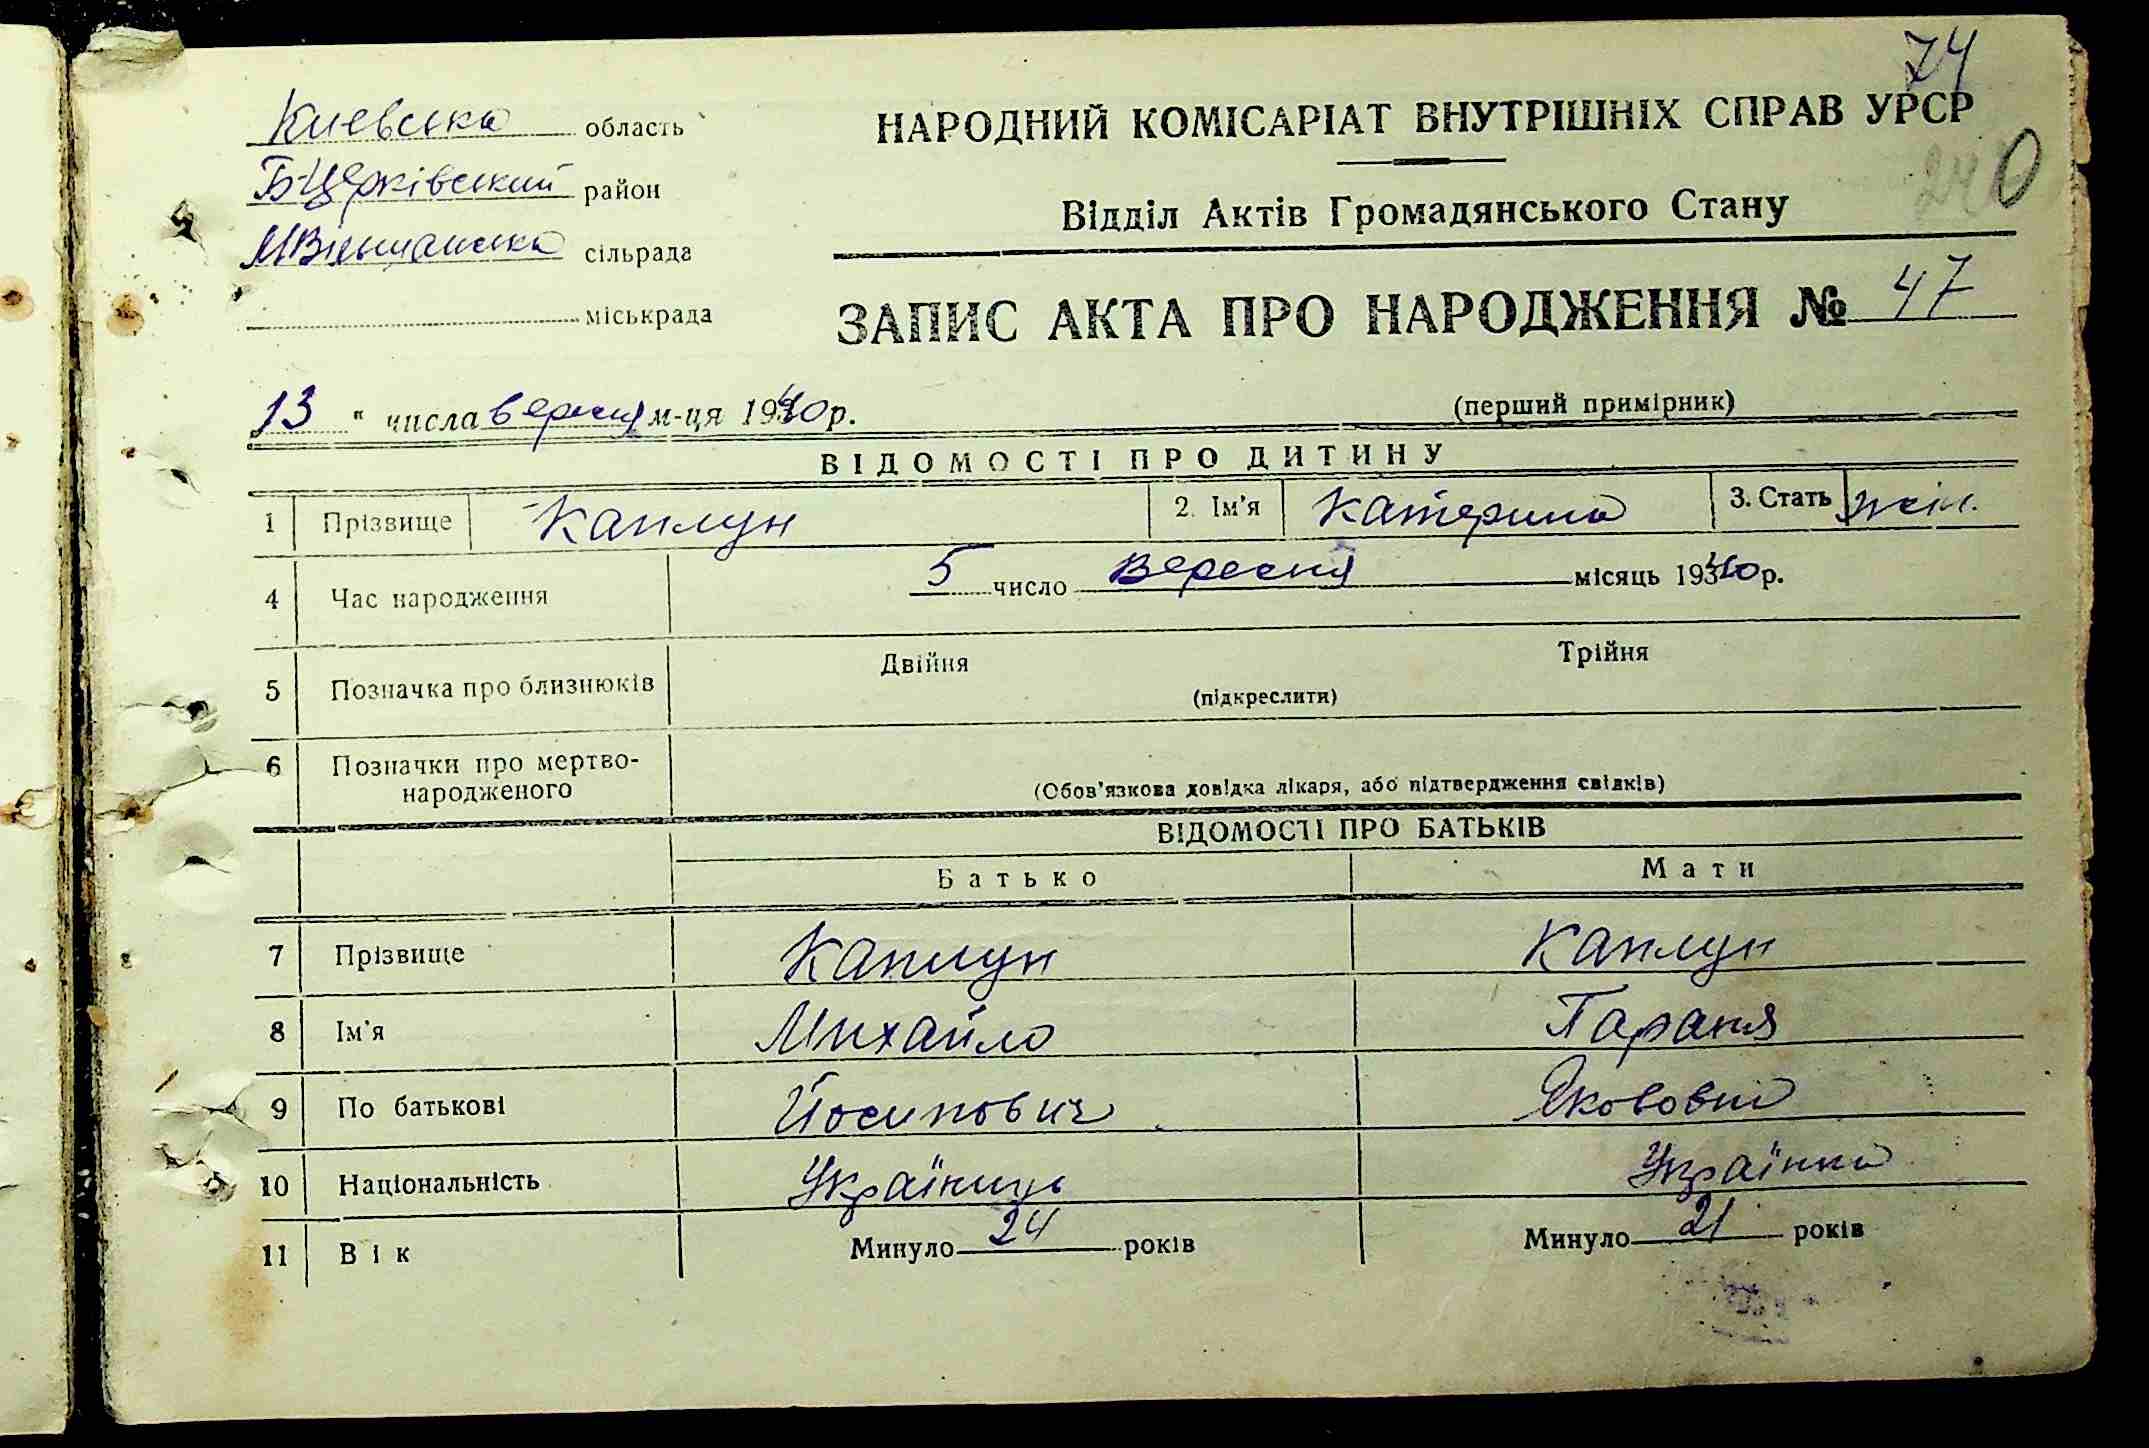 74
Киевська область
НАРОДНИЙ КОМІСАРІАТ ВНУТРІШНІХ СПРАВ УРСР
240
Б-Церківський район
Відділ Актів Громадянського Стану
МВільшанська сільрада
міськрада
ЗАПИС АКТА ПРО НАРОДЖЕННЯ № 47
13 " числа вересня м-ця 1940 р.
(перший примірник)
ВІДОМОСТІ ПРО ДИТИНУ
1 Прізвище Каплун 2. Ім'я Катерина 3. Стать жін.
4 Час народження 5 число Вересня місяць 1940 р.
5 Позначка про близнюків Двійня Трійня
(підкреслити)
6 Позначки про мертво-
народженого (Обов'язкова довідка лікаря, або підтвердження свідків)
ВІДОМОСТІ ПРО БАТЬКІВ
Батько Мати
7 Прізвище Каплун Каплун
8 Ім'я Михайло Параня
9 По батькові Йосипович Якововна
10 Національність Українець Українка
11 Вік Минуло 24 років Минуло 21 років